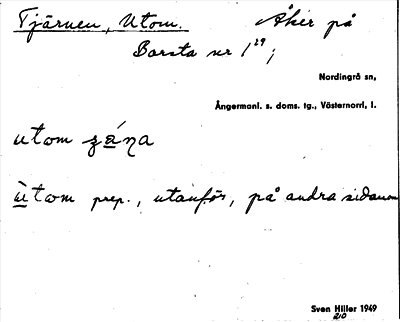 Tjärnen, Utom. Åker på
Borsta nr 1²⁹,
Nordingrå sn,
Ångermanl. s. doms. tg., Västernorrl. l.
utom
ùtom prep., utanför, på andra sidan om
Sven Hiller 1949
210